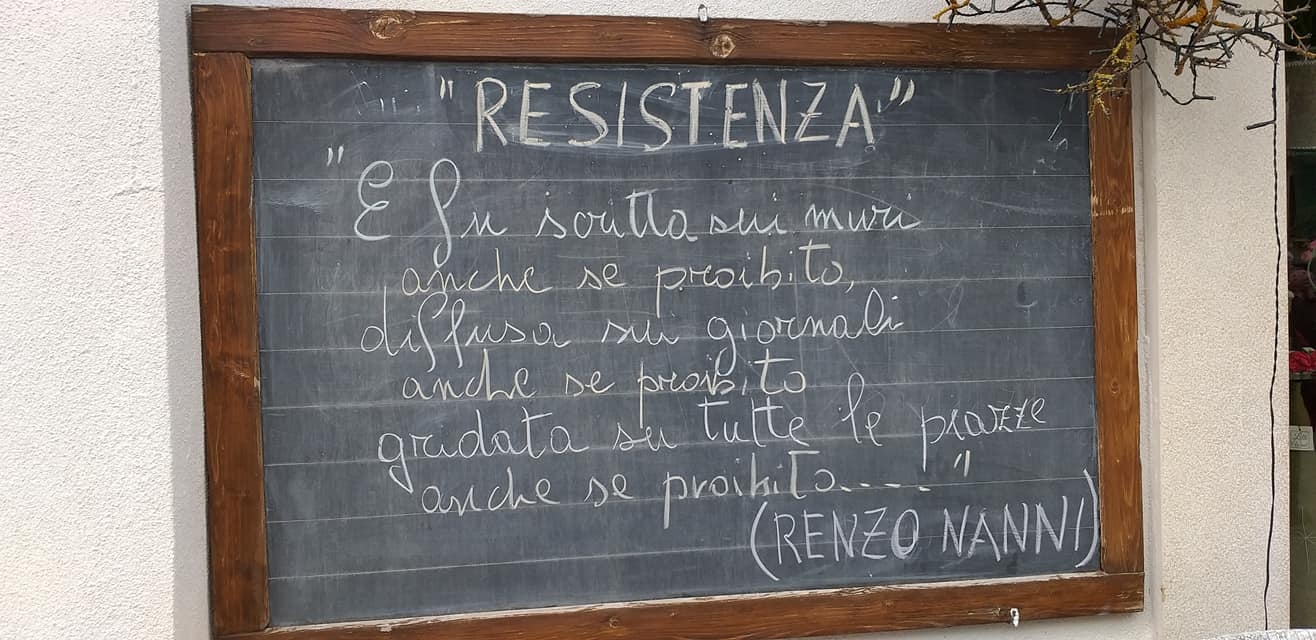 "RESISTENZA"
"E fu scritta sui muri
anche se proibito,
diffusa sui giornali
anche se proibito
gridata su tutte le piazze
anche se proibito....."
(RENZO NANNI)